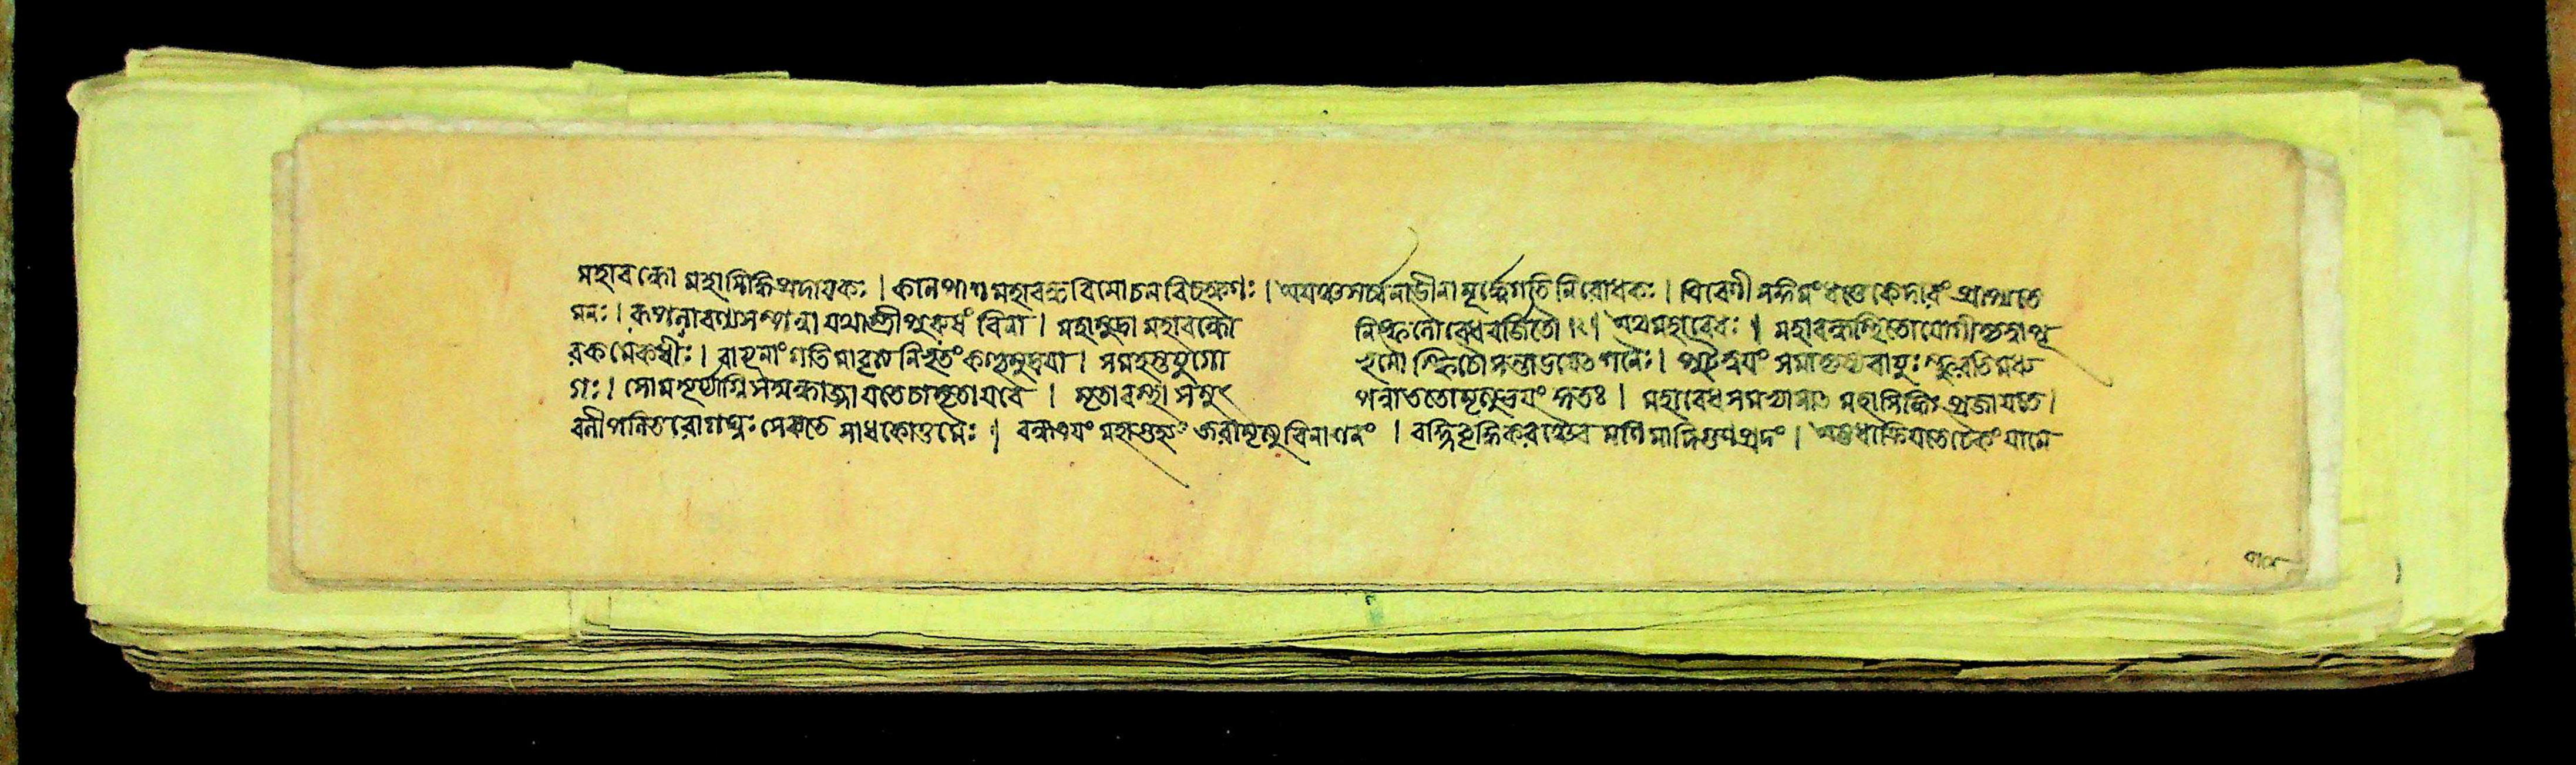 মহাবন্ধো মহাসিদ্ধিপ্রদায়কঃ । কালপাশমহাবন্ধবিমোচনবিচক্ষণঃ । অয়ঞ্চ সর্ব্বনাডীনামূর্দ্ধ্বেগতিনিরোধকঃ । ত্রিবেণী সঙ্গমং ধত্তে কেদারং প্রাপয়তে
মনঃ । রূপলাবণ্যসম্পন্না যথা স্ত্রী পুরুষং বিনা । মহামুদ্রা মহাবন্ধো নিষ্ফলো বেধবর্জিতৌ । অথ মহাবেধঃ । মহাবন্ধস্থিতো যোগী কৃত্বা পূ
রকমেকধীঃ । বায়ূনাং গতিমাবৃত্য নিভৃতং কণ্ঠমুদ্রয়া । সমহস্তযুগো ভূমৌ স্ফিচৌ সন্তাডয়েত শনৈঃ । পুটদ্বয়ং সমাক্রম্য বায়ুঃ স্ফুরতি মধ্য
গঃ । সোমসূর্য্যাগ্নিসম্বন্ধাজ্জায়তে চামৃতায় বৈ । মৃতাবস্থা সমুৎ পন্না ততো মৃত্যুভয়ং কুতঃ । মহাবেধসমভ্যাসাত মহাসিদ্ধিঃ প্রজায়তে ।
বলীপলিতরোগঘ্নঃ সেব্যতে সাধকোত্তমৈঃ । বন্ধত্রয়ং মহাগুহ্যং জরামৃত্যুবিনাশনং । বহ্নিবৃদ্ধিকরঞ্চৈব মণিমাদিগুণপ্রদং । অষ্টধা ক্রিয়তে চৈকং যামে